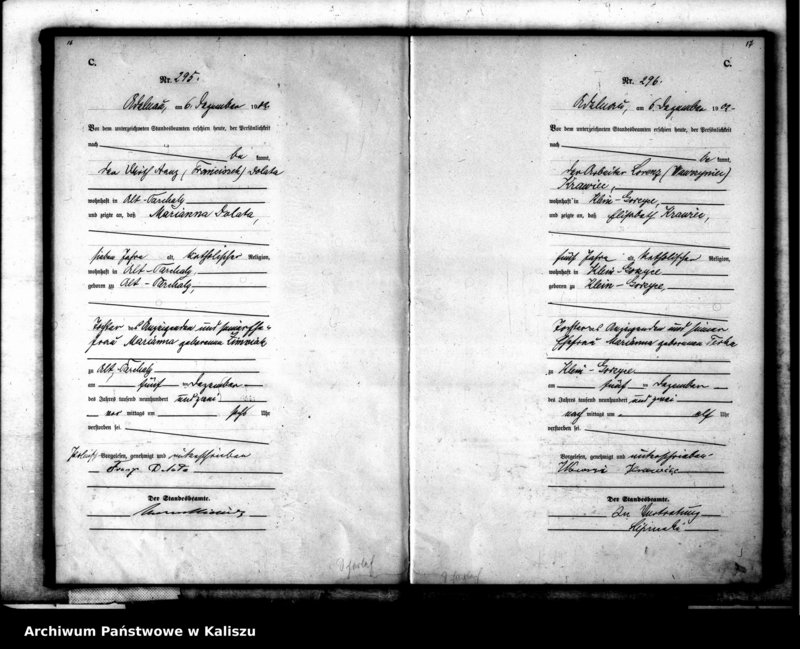 16
C.
Nr. 295.
Adelnau, am 6. Dezember 1902
Vor dem unterzeichneten Standesbeamten erschien heute, der Persönlichkeit
nach
be kannt,
der Franz (Franciszek) Dolata
wohnhaft in Alt-Tarchaly
und zeigte an, daß Marianna Dolata,
sieben Jahre alt, katholischer Religion,
wohnhaft in Alt-Tarchaly
geboren zu Alt-Tarchaly,
Tochter des Anzeigenden und seiner Ehe-
frau Marianna geborenen
zu Alt-Tarchaly
am fünf ten Dezember
des Jahres tausend neunhundert und zwei
vor mittags um sechs Uhr
verstorben sei.
Vorgelesen, genehmigt und unterschrieben
Franz Dolata
Der Standesbeamte.
17
C.
Nr. 296.
Adelnau, am 6. Dezember 1902
Vor dem unterzeichneten Standesbeamten erschien heute, der Persönlichkeit
nach
be kannt,
der Arbeiter Lorenz (Wawrzyniec)
Krawiec,
wohnhaft in Klein-Gorzyce,
und zeigte an, daß Elisabeth Krawiec,
fünf Jahre alt, katholischer Religion,
wohnhaft in Klein-Gorzyce
geboren zu Klein-Gorzyce,
Tochter des Anzeigenden und seiner
Ehefrau Marianna geborenen
zu Klein-Gorzyce
am fünf ten Dezember
des Jahres tausend neunhundert und zwei
nach mittags um elf Uhr
verstorben sei.
Vorgelesen, genehmigt und unterschrieben
Krawiec
Der Standesbeamte.
In Vertretung
Archiwum Państwowe w Kaliszu